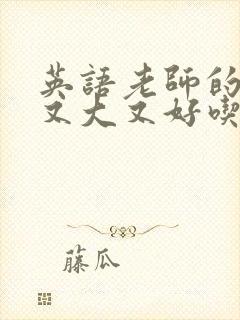 英語老師的
又大又好喫
藤瓜